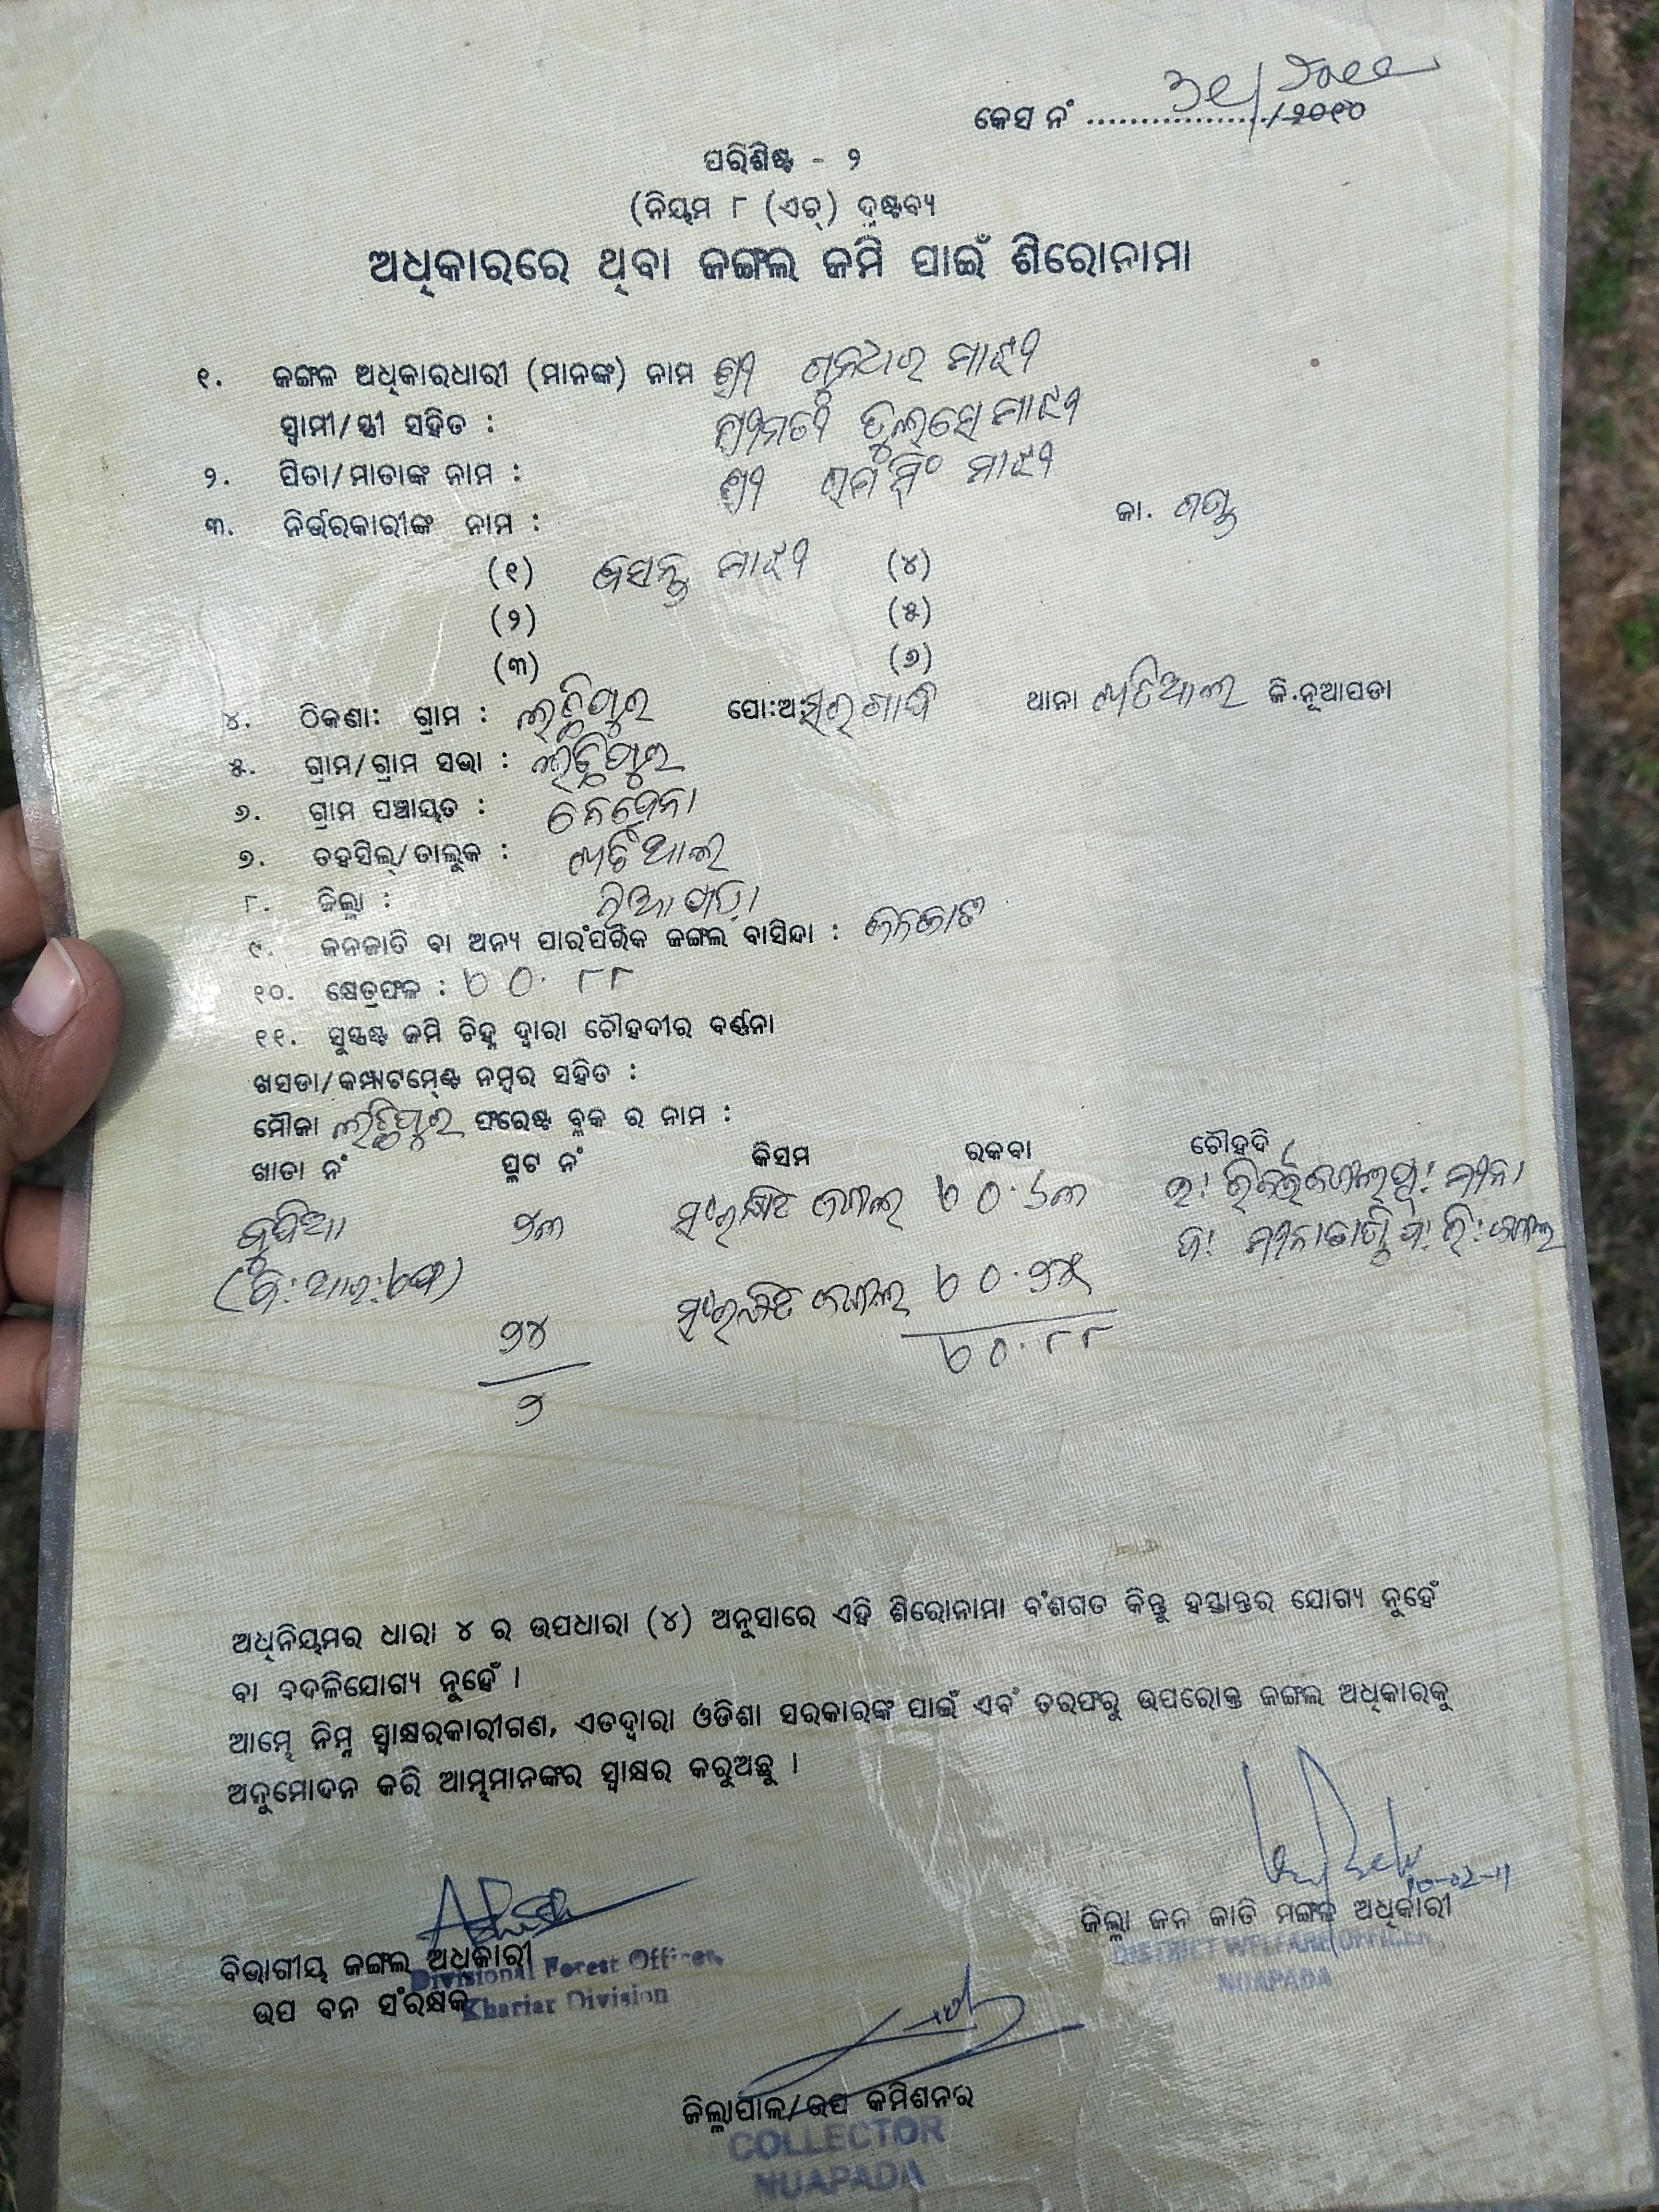 କେସ ନଂ ................../୨୦୧୦
ପରିଶିଷ୍ଟ - ୨
(ନିୟମ ୮ (ଏଚ୍) ଦ୍ରଷ୍ଟବ୍ୟ
ଅଧିକାରରେ ଥିବା ଜଙ୍ଗଲ ଜମି ପାଇଁ ଶିରୋନାମା
୧. ଜଙ୍ଗଲ ଅଧିକାରଧାରୀ (ମାନଙ୍କ) ନାମ ଶ୍ରୀ ଗୁନଧର ମାଝୀ
ସ୍ୱାମୀ/ସ୍ତ୍ରୀ ସହିତ : ଶ୍ରୀମତୀ ତୁଲ୍‌ସେ ମାଝୀ
୨. ପିତା/ମାତାଙ୍କ ନାମ : ଶ୍ରୀ ମାଝୀ
୩. ନିର୍ଭରକାରୀଙ୍କ ନାମ : ଜା. ଗଣ୍ଡ
(୧) ବସନ୍ତ ମାଝୀ (୪)
(୨) (୫)
(୩) (୬)
୪. ଠିକଣା: ଗ୍ରାମ : ଲଚ୍ଛିପୁର ପୋ:ଅ: ଥାନା ଜି.ନୂଆପଡା
୫. ଗ୍ରାମ/ଗ୍ରାମ ସଭା : ଲଚ୍ଛିପୁର
୬. ଗ୍ରାମ ପଞ୍ଚାୟତ :
୭. ତହସିଲ୍/ତାଲୁକ :
୮. ଜିଲ୍ଲା : ନୂଆପଡ଼ା
୯. ଜନଜାତି ବା ଅନ୍ୟ ପାରଂପରିକ ଜଙ୍ଗଲ ବାସିନ୍ଦା : ଜନଜାତି
୧୦. କ୍ଷେତ୍ରଫଳ : ୦.୮୮
୧୧. ସୁସ୍ପଷ୍ଟ ଜମି ଚିହ୍ନ ଦ୍ୱାରା ଚୌହଦୀର ବର୍ଣ୍ଣନା
ଖସଡା/କମ୍ପାଟମେଣ୍ଟ ନମ୍ବର ସହିତ :
ମୌଜା ଲଚ୍ଛିପୁର ଫରେଷ୍ଟ ବ୍ଳକ ର ନାମ :
ଖାତା ନଂ ପ୍ଳଟ ନଂ କିସମ ରକବା ଚୌହଦି
୨୩ ସଂରକ୍ଷିତ ଜଙ୍ଗଲ
୨୪ ସଂରକ୍ଷିତ ଜଙ୍ଗଲ
୨ ୦.୮୮
ଅଧିନିୟମର ଧାରା ୪ ର ଉପଧାରା (୪) ଅନୁସାରେ ଏହି ଶିରୋନାମା ବଂଶଗତ କିନ୍ତୁ ହସ୍ତାନ୍ତର ଯୋଗ୍ୟ ନୁହେଁ
ବା ବଦଳିଯୋଗ୍ୟ ନୁହେଁ ।
ଆମ୍ଭେ ନିମ୍ନ ସ୍ୱାକ୍ଷରକାରୀଗଣ, ଏତଦ୍ୱାରା ଓଡିଶା ସରକାରଙ୍କ ପାଇଁ ଏବଂ ତରଫରୁ ଉପରୋକ୍ତ ଜଙ୍ଗଲ ଅଧିକାରକୁ
ଅନୁମୋଦନ କରି ଆମ୍ଭମାନଙ୍କର ସ୍ୱାକ୍ଷର କରୁଅଛୁ ।
ଜିଲ୍ଲା ଜନ ଜାତି ମଙ୍ଗଳ ଅଧିକାରୀ
DISTRICT WELFARE OFFICER
NUAPADA
ବିଭାଗୀୟ ଜଙ୍ଗଲ ଅଧିକାରୀ
Divisional Forest Officer,
ଉପ ବନ ସଂରକ୍ଷକ
Khariar Division
ଜିଲ୍ଲାପାଳ/ଉପ କମିଶନର
COLLECTOR
NUAPADA